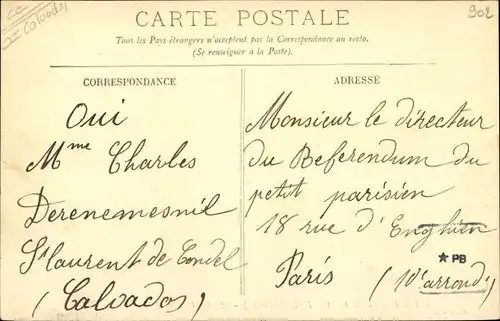 Calvados
902
CARTE POSTALE
Tous les Pays étrangers n'acceptent pas la Correspondance au recto.
(Se renseigner à la Poste).
CORRESPONDANCE
Oui
Mme Charles
Derenemesnil
St laurent de Condel
(Calvados)
ADRESSE
Monsieur le directeur
du Referendum du
petit parisien
18 rue d'Enghien
★PB
Paris (10e arrond)